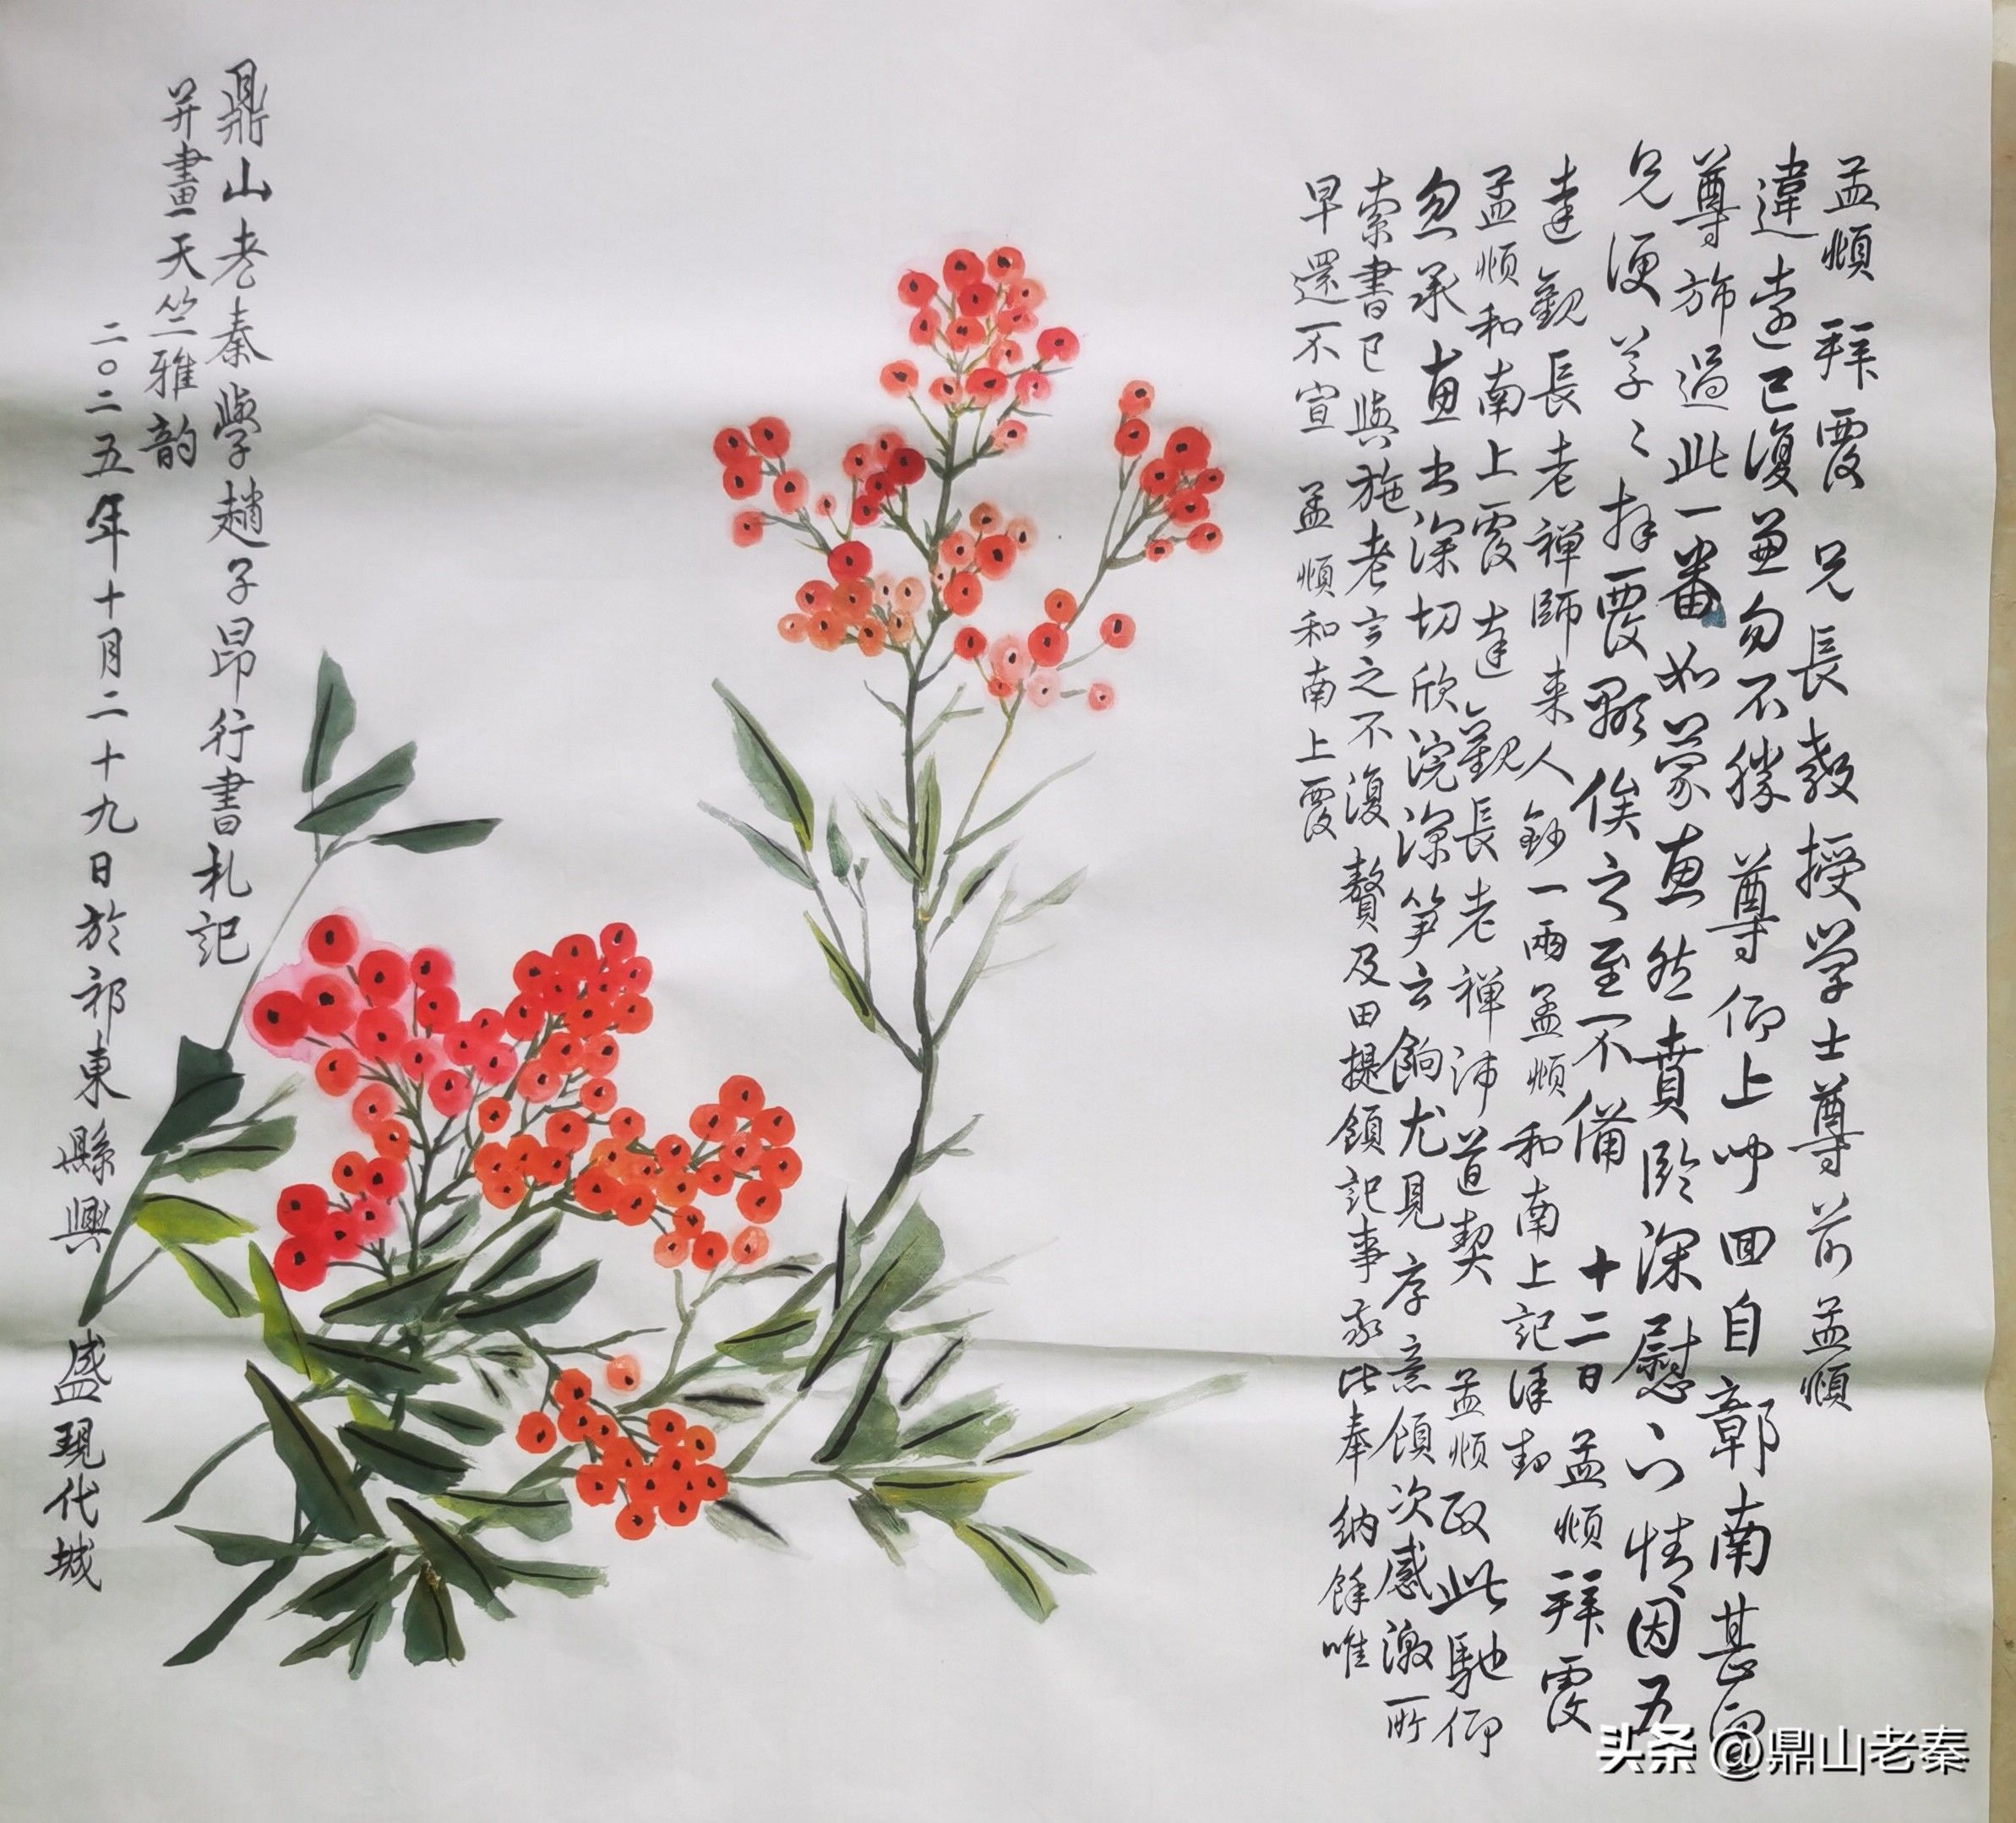 孟頫拜覆 兄長教授学士尊前孟頫
違遠已復兼旬不勝尊仰上中回自鄣南甚
尊旆過此一番如蒙惠然賁臨深慰下情因五
兄便草々拜覆顒俟之至不備 十二日孟頫拜覆
達觀長老禅師来人鈔一兩孟頫和南上記謹封
孟頫和南上覆達觀長老禅師道契 孟頫政此馳仰
忽承惠書深切欣浣深笋云餉尤見序意領次感激所
索書已與施老言之不復贅及田提領記事亦此奉納餘唯
早還不宣 孟頫和南上覆
鼎山老秦學趙子昂行書札記
并畫天竺雅韵
二〇二五年十月二十九日於祁東縣興盛現代城
头条 @鼎山老秦